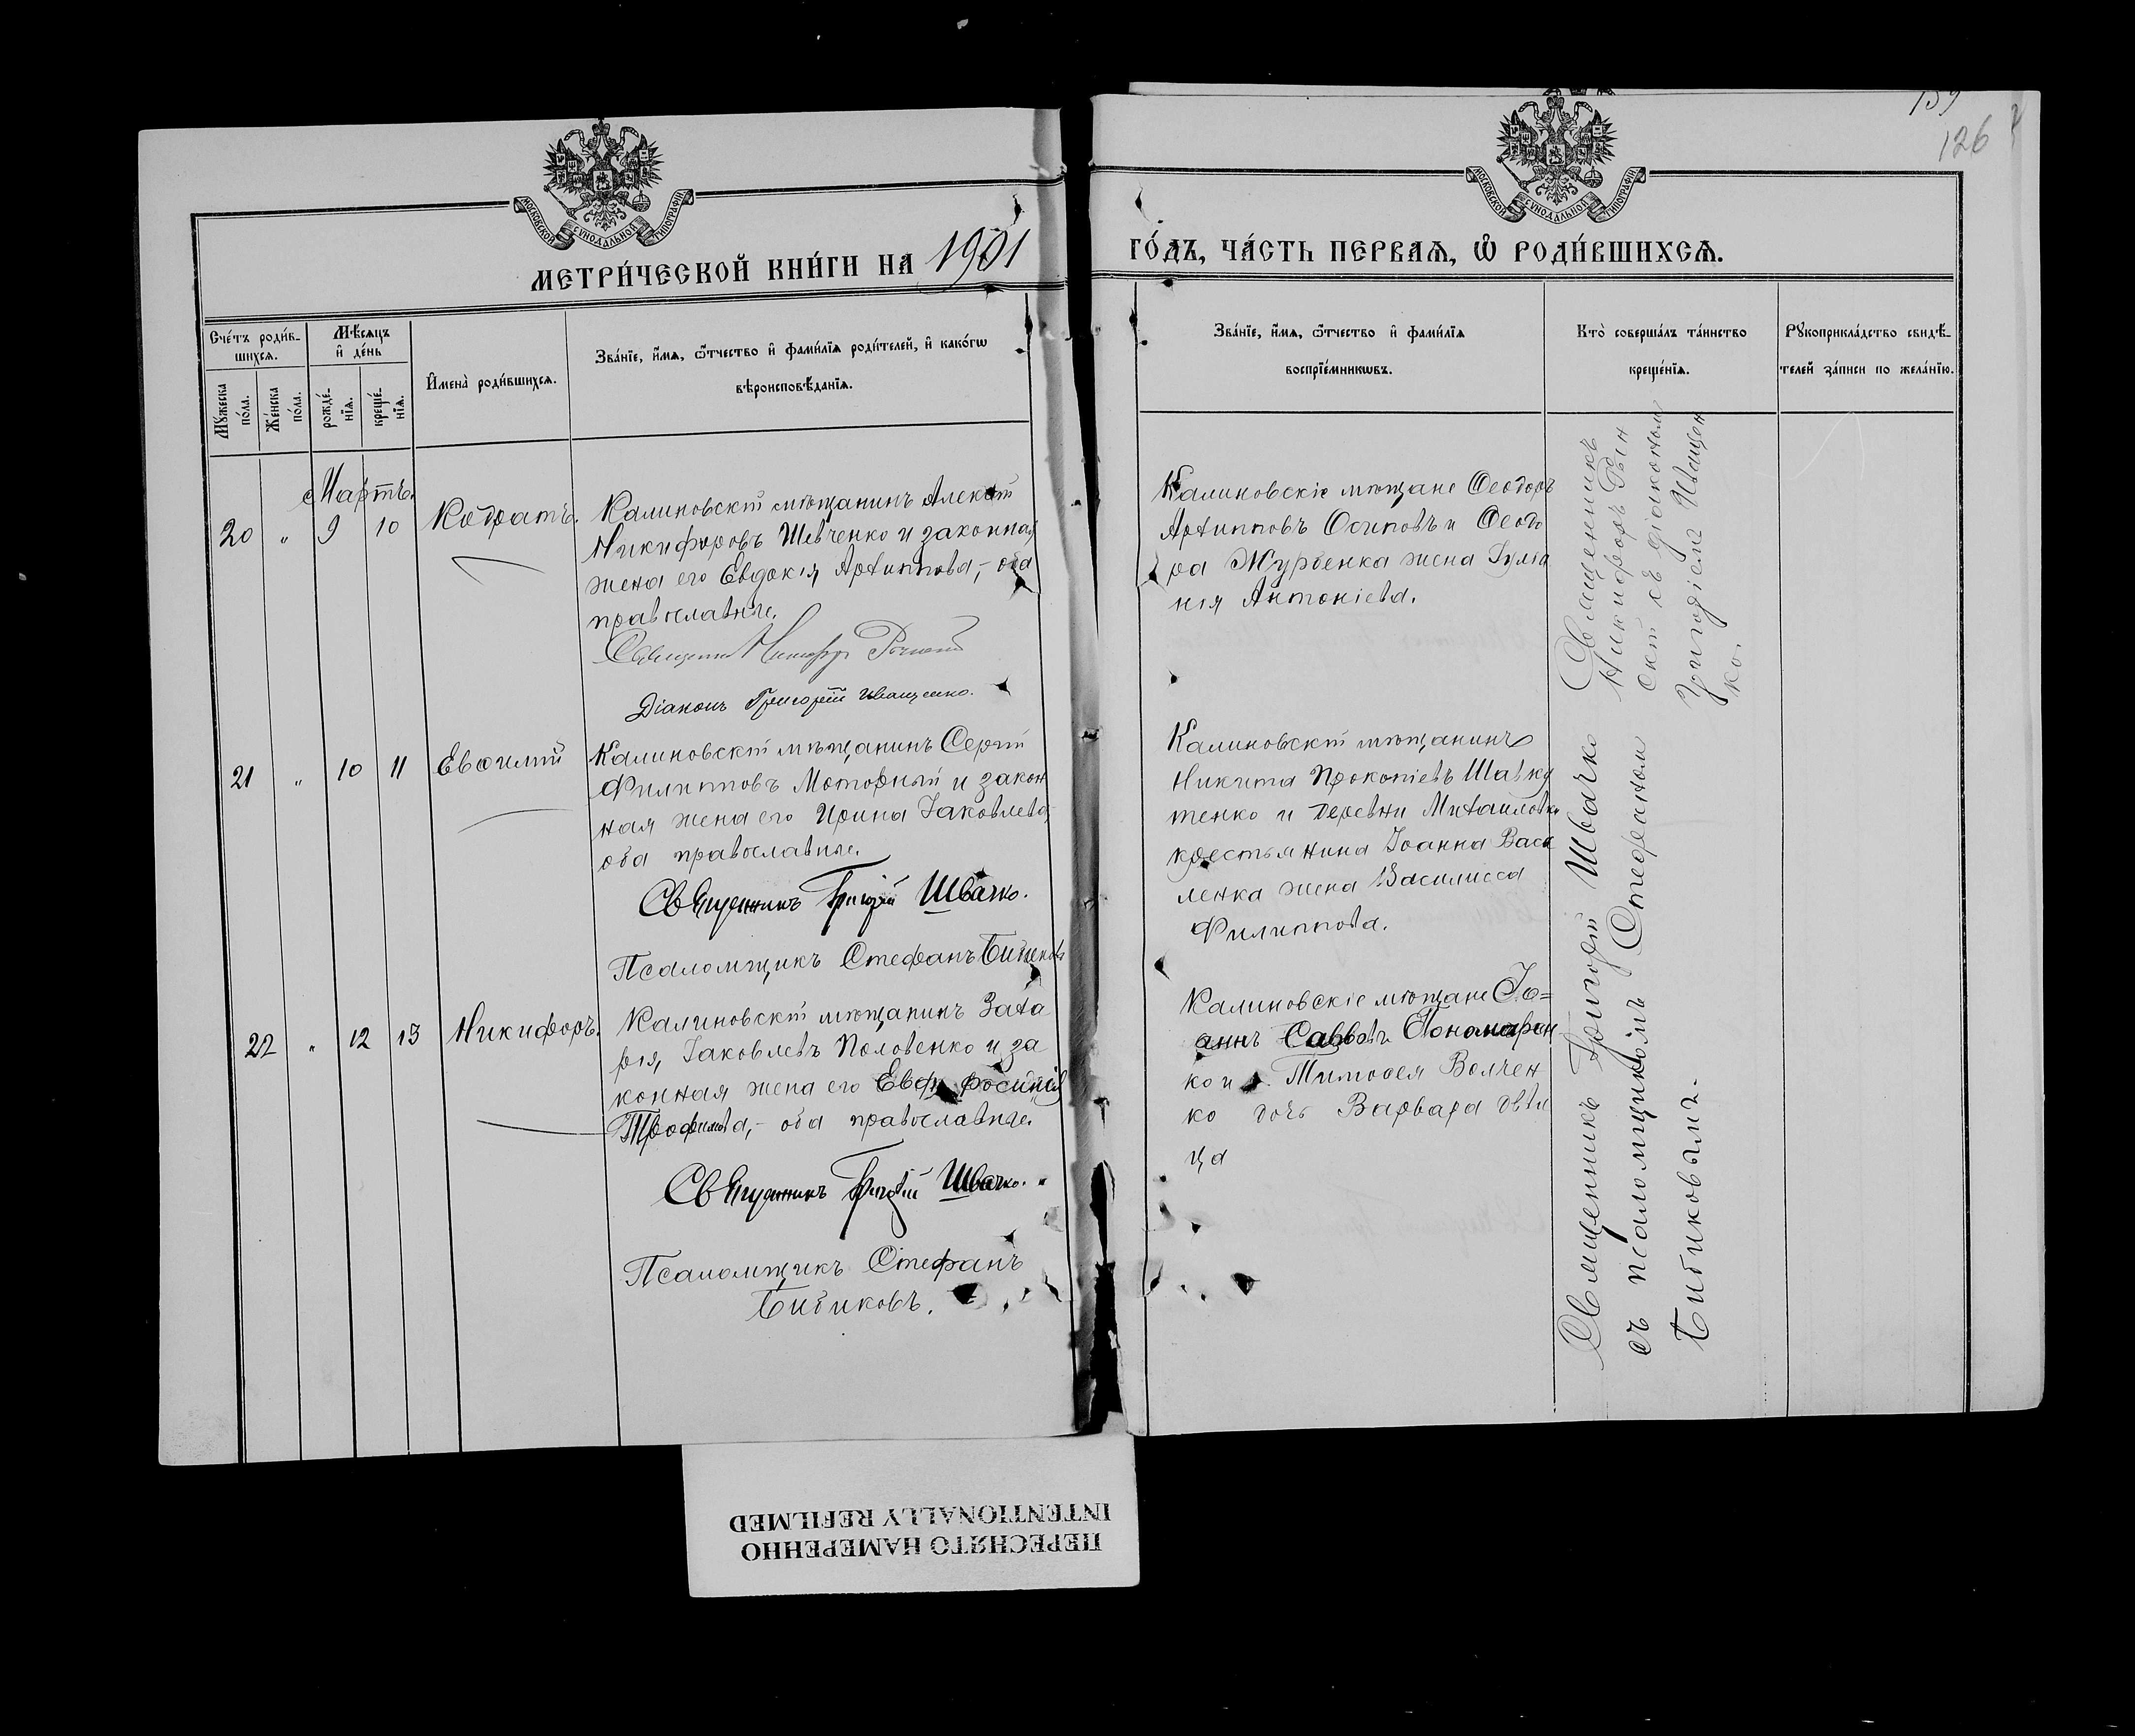 159
126
МОСКОВСКОЙ СѴНОДАЛЬНОЙ ТИПОГРАФІИ
МОСКОВСКОЙ СѴНОДАЛЬНОЙ ТИПОГРАФІИ
МЕТРИ́ЧЕСКОЙ КНИ́ГИ НА 1901
ГО́ДЪ, ЧА́СТЬ ПЕРВАѦ, Ѡ҆ РОДИ́ВШИХСѦ.
Сче́тъ роди́в-
шихсѧ.
Мꙋ́жеска
по́ла.
Же́нска
по́ла.
Мѣ́сѧцъ
и҆ де́нь
рожде́-
нїѧ.
креще́-
нїѧ.
И҆мена̀ роди́вшихсѧ.
Зва́нїе, и҆́мѧ, ѻ҆́тчество и҆ фами́лїѧ роди́телей, и҆ како́гѡ
вѣроисповѣ́данїѧ.
Зва́нїе, и҆́мѧ, ѻ҆́тчество и҆ фами́лїѧ
воспрїе́мникѡвъ.
Кто̀ соверша́лъ та́инство
креще́нїѧ.
Рꙋкоприкла́дство свидѣ́-
телей за́писи по жела́нїю.
Мартъ.
20 " 9 10 Кодратъ.
Калиновскій мѣщанинъ Алексій
Никифоровъ Шевченко и законная
жена его Евдокія Архиппова,- оба
православные.
Священникъ Никифоръ
Діаконъ Григорій Иващенко.
Калиновскіе мѣщане Ѳеодоръ
Архипповъ Осиповъ и Ѳеодо
ра Журбенка жена Іуліа
нія Антоніева.
Священникъ
Никифоръ
скій съ діакономъ
Григоріемъ Иващен
ко.
21 " 10 11 Евѳимій
Калиновскій мѣщанинъ Сергій
Филипповъ Моторный и закон
ная жена его Ирина Іаковлева,
оба православные.
Священникъ Григорій Швачко.
Псаломщикъ Стефанъ Бибиковъ
Калиновскій мѣщанинъ
Никита Прокопіевъ Шавку
тенко и деревни Михаиловки
крестьянина Іоанна Васи
ленка жена Василисса
Филиппова.
22 " 12 13 Никифоръ.
Калиновскій мѣщанинъ Заха
рія Іаковлевъ Половенко и за
конная жена его Евфросинія
Трофимова,- оба православные.
Священникъ Григорій Швачко.
Псаломщикъ Стефанъ
Бибиковъ.
Калиновскіе мѣщане Іо=
аннъ Саввовъ Пономарен
ко и Тимоѳея Волчен
ко дочь Варвара дѣви
ца
Священникъ Григорій Швачко
съ псаломщикомъ Стефаномъ
Бибиковымъ.
ПЕРЕСНЯТО НАМЕРЕННО
INTENTIONALLY REFILMED